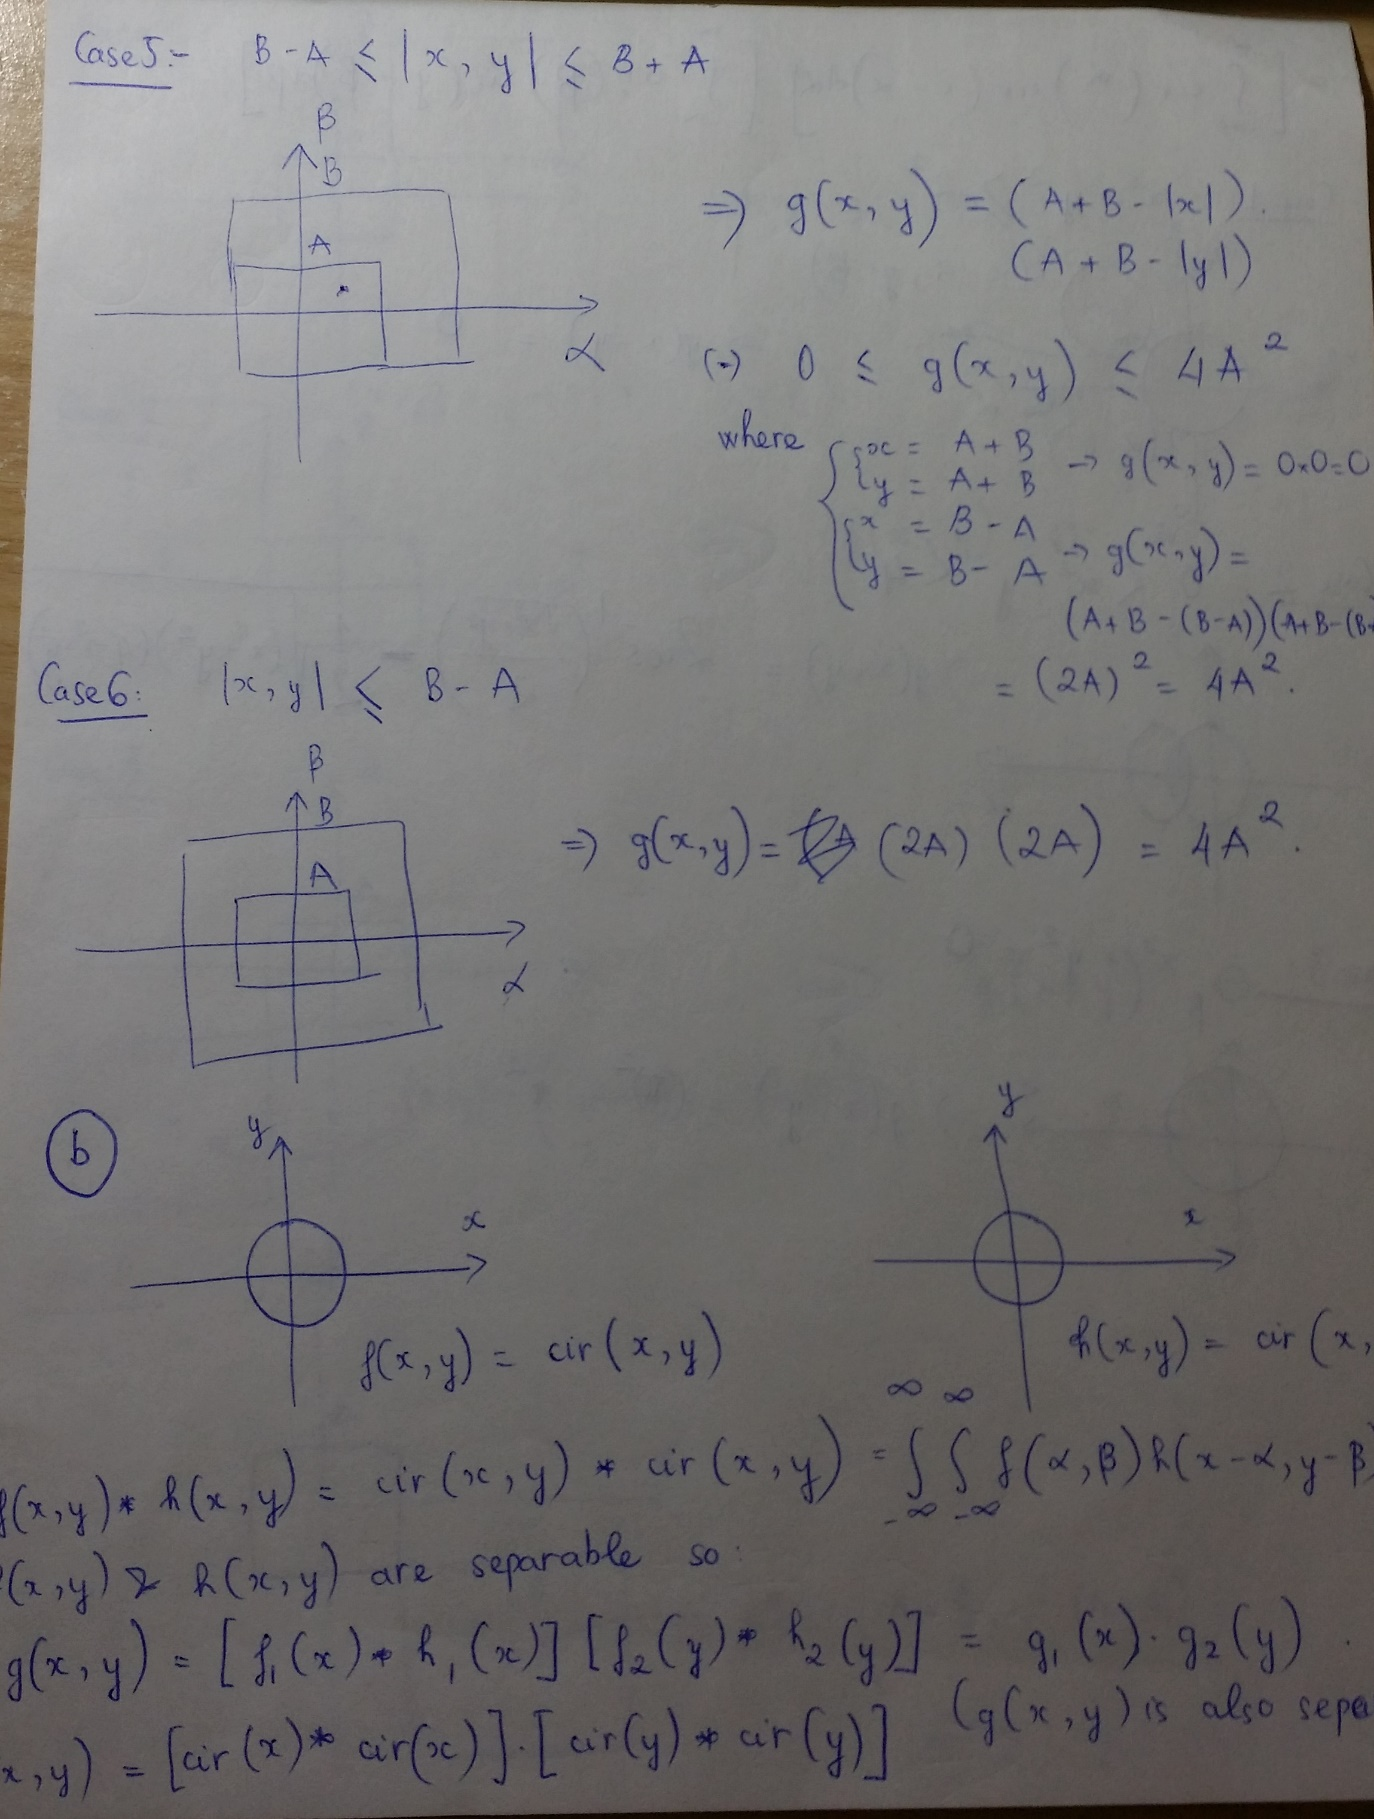 Case 5:- B-A ≤ |x, y| ≤ B+A
β
B
A
α
⇒ g(x,y) = (A+B-|x|).
(A+B-|y|)
(-) 0 ≤ g(x,y) ≤ 4A²
where { { x = A+B
y = A+B → g(x,y) = 0×0=0
{ x = B-A
y = B-A → g(x,y) =
(A+B-(B-A))(A+B-(B-
= (2A)² = 4A².
Case 6: |x, y| ≤ B-A
β
B
A
α
⇒ g(x,y) = (2A) (2A) = 4A².
b
y
x
f(x,y) = cir(x,y)
y
x
h(x,y) = cir(x,
f(x,y) * h(x,y) = cir(x,y) * cir(x,y) = ∫_{-∞}^{∞} ∫_{-∞}^{∞} f(α,β)h(x-α,y-β)
(x,y) & h(x,y) are separable so:
g(x,y) = [f₁(x) * h₁(x)] [f₂(y) * h₂(y)] = g₁(x). g₂(y).
(g(x,y) is also sepa
x,y) = [cir(x) * cir(x)].[cir(y) * cir(y)]